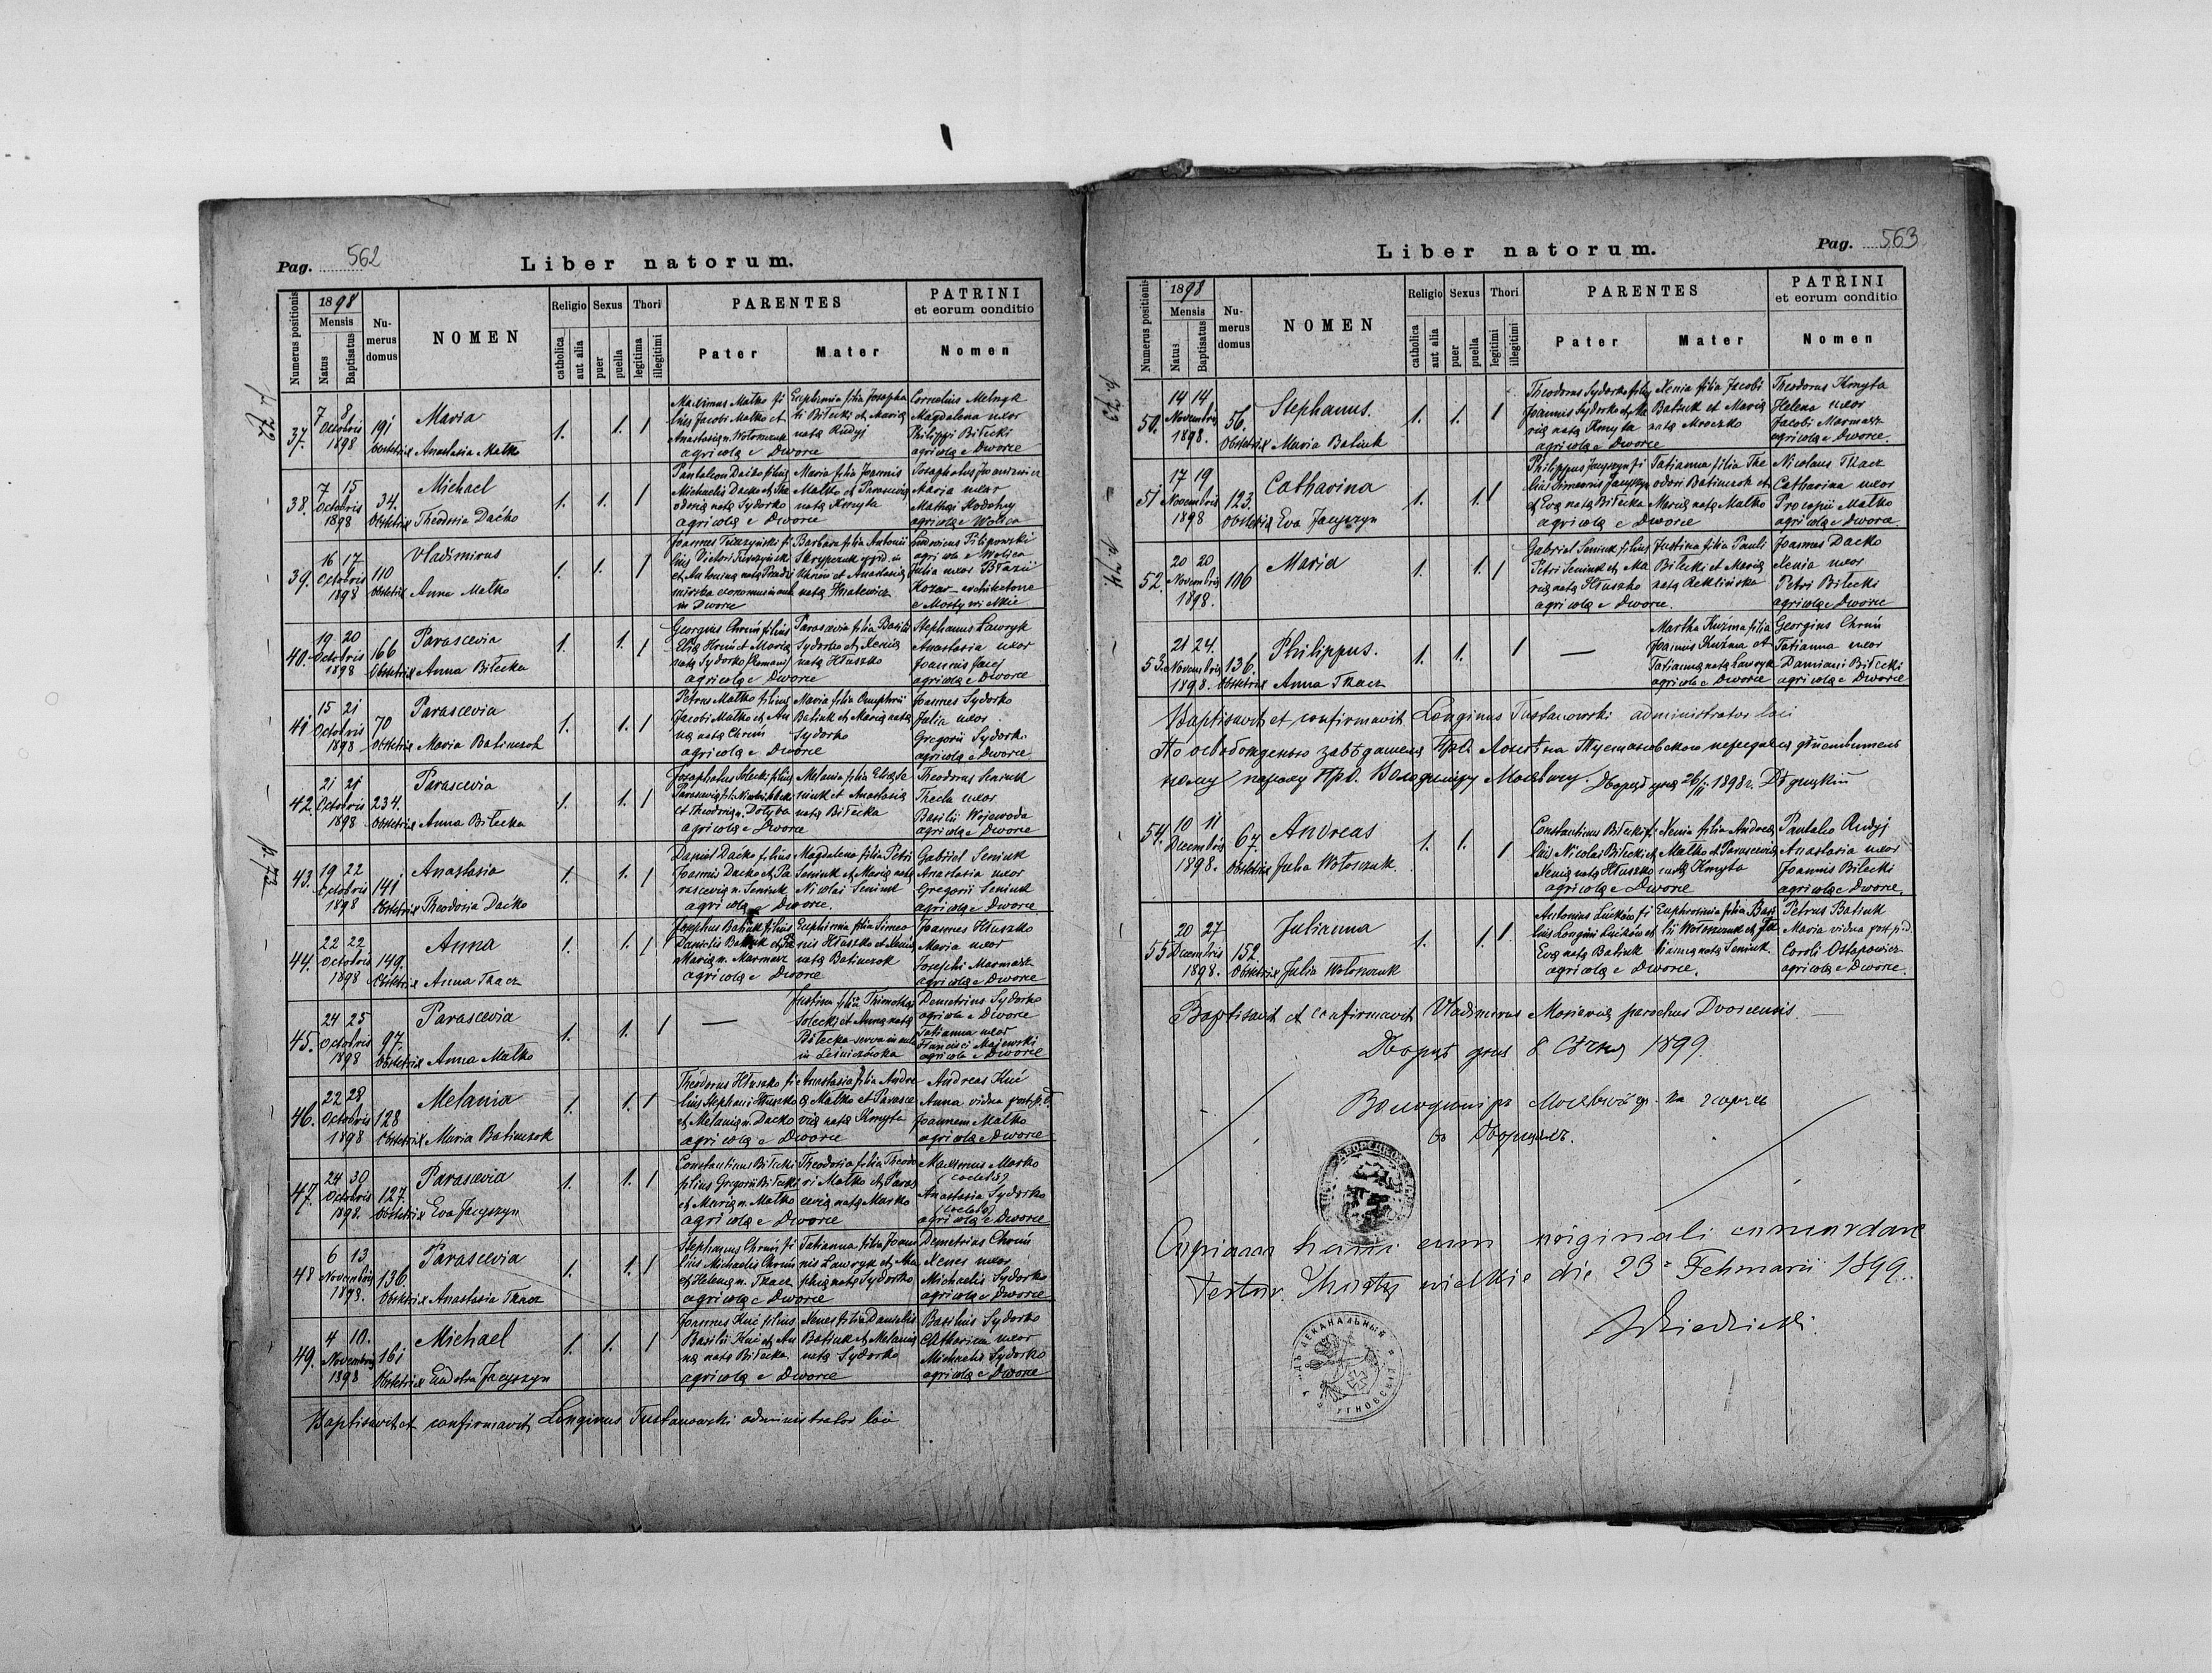 Pag. 562
Liber natorum.
Numerus positionis
1898
Mensis
Natus
Baptisatus
Numerus domus
NOMEN
Religio
catholica
aut alia
Sexus
puer
puella
Thori
legitima
illegitimi
PARENTES
Pater
Mater
PATRINI
et eorum conditio
Nomen
37.
7 8
Octobris
1898
191
Maria
Obstetrix Anastasia Matko
1. 1. 1
Maximus Matko fi
lius Jacobi Matko et
Anastasia n. Wołoszczuk
agricola e Dworce
Euphemia filia Josapha
ti Biłecki et Maria
nata Rudyj
Cornelius Melnyk
Magdalena uxor
Philippi Biłecki
agricola e Dworce
38.
7 15
Octobris
1898
34.
Michael
Obstetrix Theodosia Daćko
1. 1. 1
Pantaleon Daćko filius
Michaelis Dacko et The
odosia nata Sydorko
agricola e Dworce
Maria filia Joannis
Matko et Parascevia
nata Kmyta
Maria uxor
agricola e Wolica
39.
16 17
Octobris
1898
110
Vladimirus
Obstetrix Anna Matko
1. 1. 1
in Dworce
Barbara filia Antonii
Ludovicus Filipowski
agricola e Wolica
Julia uxor Błazii
Kozar architectone
e Mosty wielkie
40.
19 20
Octobris
1898
166
Parascevia
Obstetrix Anna Biłecka
1. 1. 1
Georgius Chruń filius
Elia Hruń et Maria
nata Sydorko
agricola e Dworce
Parascevia filia Basilii
Sydorko et Xenia
nata Hłuszko
Stephanus Ławryk
Anastasia uxor
Joannis
agricola e Dworce
41
15 21
Octobris
1898
70
Parascevia
Obstetrix Maria Batiuczok
1. 1. 1
Petrus Matko filius
Jacobi Matko et An
na nata Chruń
agricola e Dworce
Maria filia Onuphrii
Batiuk et Maria nata
Sydorko
Joannes Sydorko
Julia uxor
Gregorii Sydork.
agricola e Dworce
42.
21 21
Octobris
1898
234.
Parascevia
Obstetrix Anna Biłecka
1. 1. 1
agricola e Dworce
Melania filia Elia Se
niuk et Anastasia
nata Biłecka
Theodorus Seniuk
Thecla uxor
Basilii Wojewoda
agricola e Dworce
43.
19 22
Octobris
1898
141
Anastasia
Obstetrix Theodosia Dacko
1. 1. 1
Daniel Daćko filius
Joannis Dacko et Pa
rascevia n. Seniuk
agricola e Dworce.
Magdalena filia Petri
Seniuk et Maria nata
Nicolai Seniuk
Gabriel Seniuk
Anastasia uxor
Gregorii Seniuk
agricola e Dworce
44.
22 22
Octobris
1898
149.
Anna
Obstetrix Anna Tkacz
1. 1. 1
Josephus Batiuk filius
Danielis Batiuk et
Maria n. Marmasz
agricola e Dworce
Euphemia filia Simeo
nis Hłuszko et Xenia
nata Batiuczok
Joannes Hłuszko
Maria uxor
Josephi Marmasz
agricola e Dworce
45.
24 25
Octobris
1898
97.
Parascevia
Obstetrix Anna Matko
1. 1. 1
—
Justina filia Thimothei
Solecki et Anna nata
Biłecka serva in aula
in Leśniczówka
Demetrius Sydorko
agricola e Dworce
Tatianna uxor
Francisci Majewski
agricola e Dworce
46.
22 28
Octobris
1898
128
Melania
Obstetrix Maria Batiuczok
1. 1. 1
Theodorus Hłuszko fi
lius Stephani Hłuszko
et Melania n. Dacko
agricola e Dworce
Anastasia filia Andre
a Matko et Parasce
via nata Kmyta
Andreas Kuć
Anna vidua post p. d.
Joannem Matko
agricola e Dworce
47.
24 30
Octobris
1898.
127.
Parascevia
Obstetrix Eva Jacyszyn
1. 1. 1
Constantinus Biłecki
filius Gregorii Biłecki
et Maria n. Matko
agricola e Dworce
Theodosia filia Theodo
ri Matko et Paras
cevia nata Marko
Maximus Marko
(coelebs)
Anastasia Sydorko
(coelebs)
agricola e Dworce
48
6 13
Novembris
1898.
136
Parascevia
Obstetrix Anastasia Tkacz
1. 1. 1
Stephanus Chruń fi
lius Michaelis Chruń
et Helena n. Tkacz
agricola e Dworce
Tatianna filia Joan
nis Ławryk et
nata Sydorko
Demetrius Chruń
Xenes uxor
Michaelis Sydorko
agricola e Dworce
49.
4 10.
Novembris
1898
161
Michael
Obstetrix Jacyszyn
1. 1. 1
Joannes Kuć filius
Basilii Kuć et An
na nata Biłecka
agricola e Dworce
Xenes filia Danielis
Batiuk et Melania
nata Sydorko
Basilius Sydorko
Catharina uxor
Michaelis Sydorko
agricola e Dworce
Baptisavit et confirmavit Longinus Tustanowski administrator loci
Pag. 563
Liber natorum.
Numerus positionis
1898
Mensis
Natus
Baptisatus
Numerus domus
NOMEN
Religio
catholica
aut alia
Sexus
puer
puella
Thori
legitimi
illegitimi
PARENTES
Pater
Mater
PATRINI
et eorum conditio
Nomen
50.
14 14
Novembris
1898.
56.
Stephanus.
Obstetrix Maria Batiuk
1. 1. 1
Theodorus Sydorko filius
Joannis Sydorko et Ma
ria nata Kmyta
agricola e Dworce
Xenia filia Jacobi
Batiuk et Maria
nata Mroczko
Theodorus Kmyta
Helena uxor
Jacobi Marmasz
agricola e Dworce.
51
17 19
Novembris
1898
123.
Catharina
Obstetrix Eva Jacyszyn
1. 1. 1
Philippus Jacyszyn fi
lius Simeonis Jacyszyn
et Eva nata Biłecka
agricola e Dworce
Tatianna filia The
odori Batiuczok et
Maria nata Matko
Nicolaus Tkacz
Catharina uxor
Procopii Matko
agricola e Dworce
52.
20 20
Novembris
1898.
106
Maria
1. 1. 1
Gabriel Seniuk filius
Petri Seniuk et Ma
ria nata Hłuszko
agricola e Dworce.
Justina filia Pauli
Biłecki et Maria
nata Reklińska
Joannes Dacko
Xenia uxor
Petri Biłecki
agricola e Dworce
53.
21 24.
Novembris
1898.
136.
Philippus.
Obstetrix Anna Tkacz
1. 1. 1
—
Martha Kuźma filia
Joannis Kuźma et
Tatianna nata Ławryk
agricola e Dworce
Georgius Chruń
Tatianna uxor
Damiani Biłecki
agricola e Dworce
Baptisavit et confirmavit Longinus Tustanowski administrator loci
54.
10 11
Decembris
1898.
67.
Andreas
Obstetrix Julia Wołoszczuk.
1. 1. 1
Constantinus Biłecki fi
lius Nicolai Biłecki et
Xenia nata Hłuszko
agricola e Dworce
Xenia filia Andrea
Matko et Parascevia
nata Kmyta
Pantaleo Rudyj
Anastasia uxor
Joannis Biłecki
agricola e Dworce,
55
20 27
Decembris
1898.
152.
Julianna
Obstetrix Julia Wołoszczuk
1. 1. 1
Antonius Lućków fi
lius Longini Lućków et
Eva nata Batiuk
agricola e Dworce.
Euphrosinia filia Basi
lii Wołoszczuk et Ta
tianna nata Seniuk.
Petrus Batiuk
Maria vidua post p. d.
Caroli Ostapowicz
agricola e Dworce.
Baptisavit et confirmavit Vladimirus Mosiewicz parochus Dvorcensis.
Дворцѣ дня 8 Січня 1899.
Copiam hanc cum originali concordare
testor. Mosty wielkie die 23 Februarii 1899.